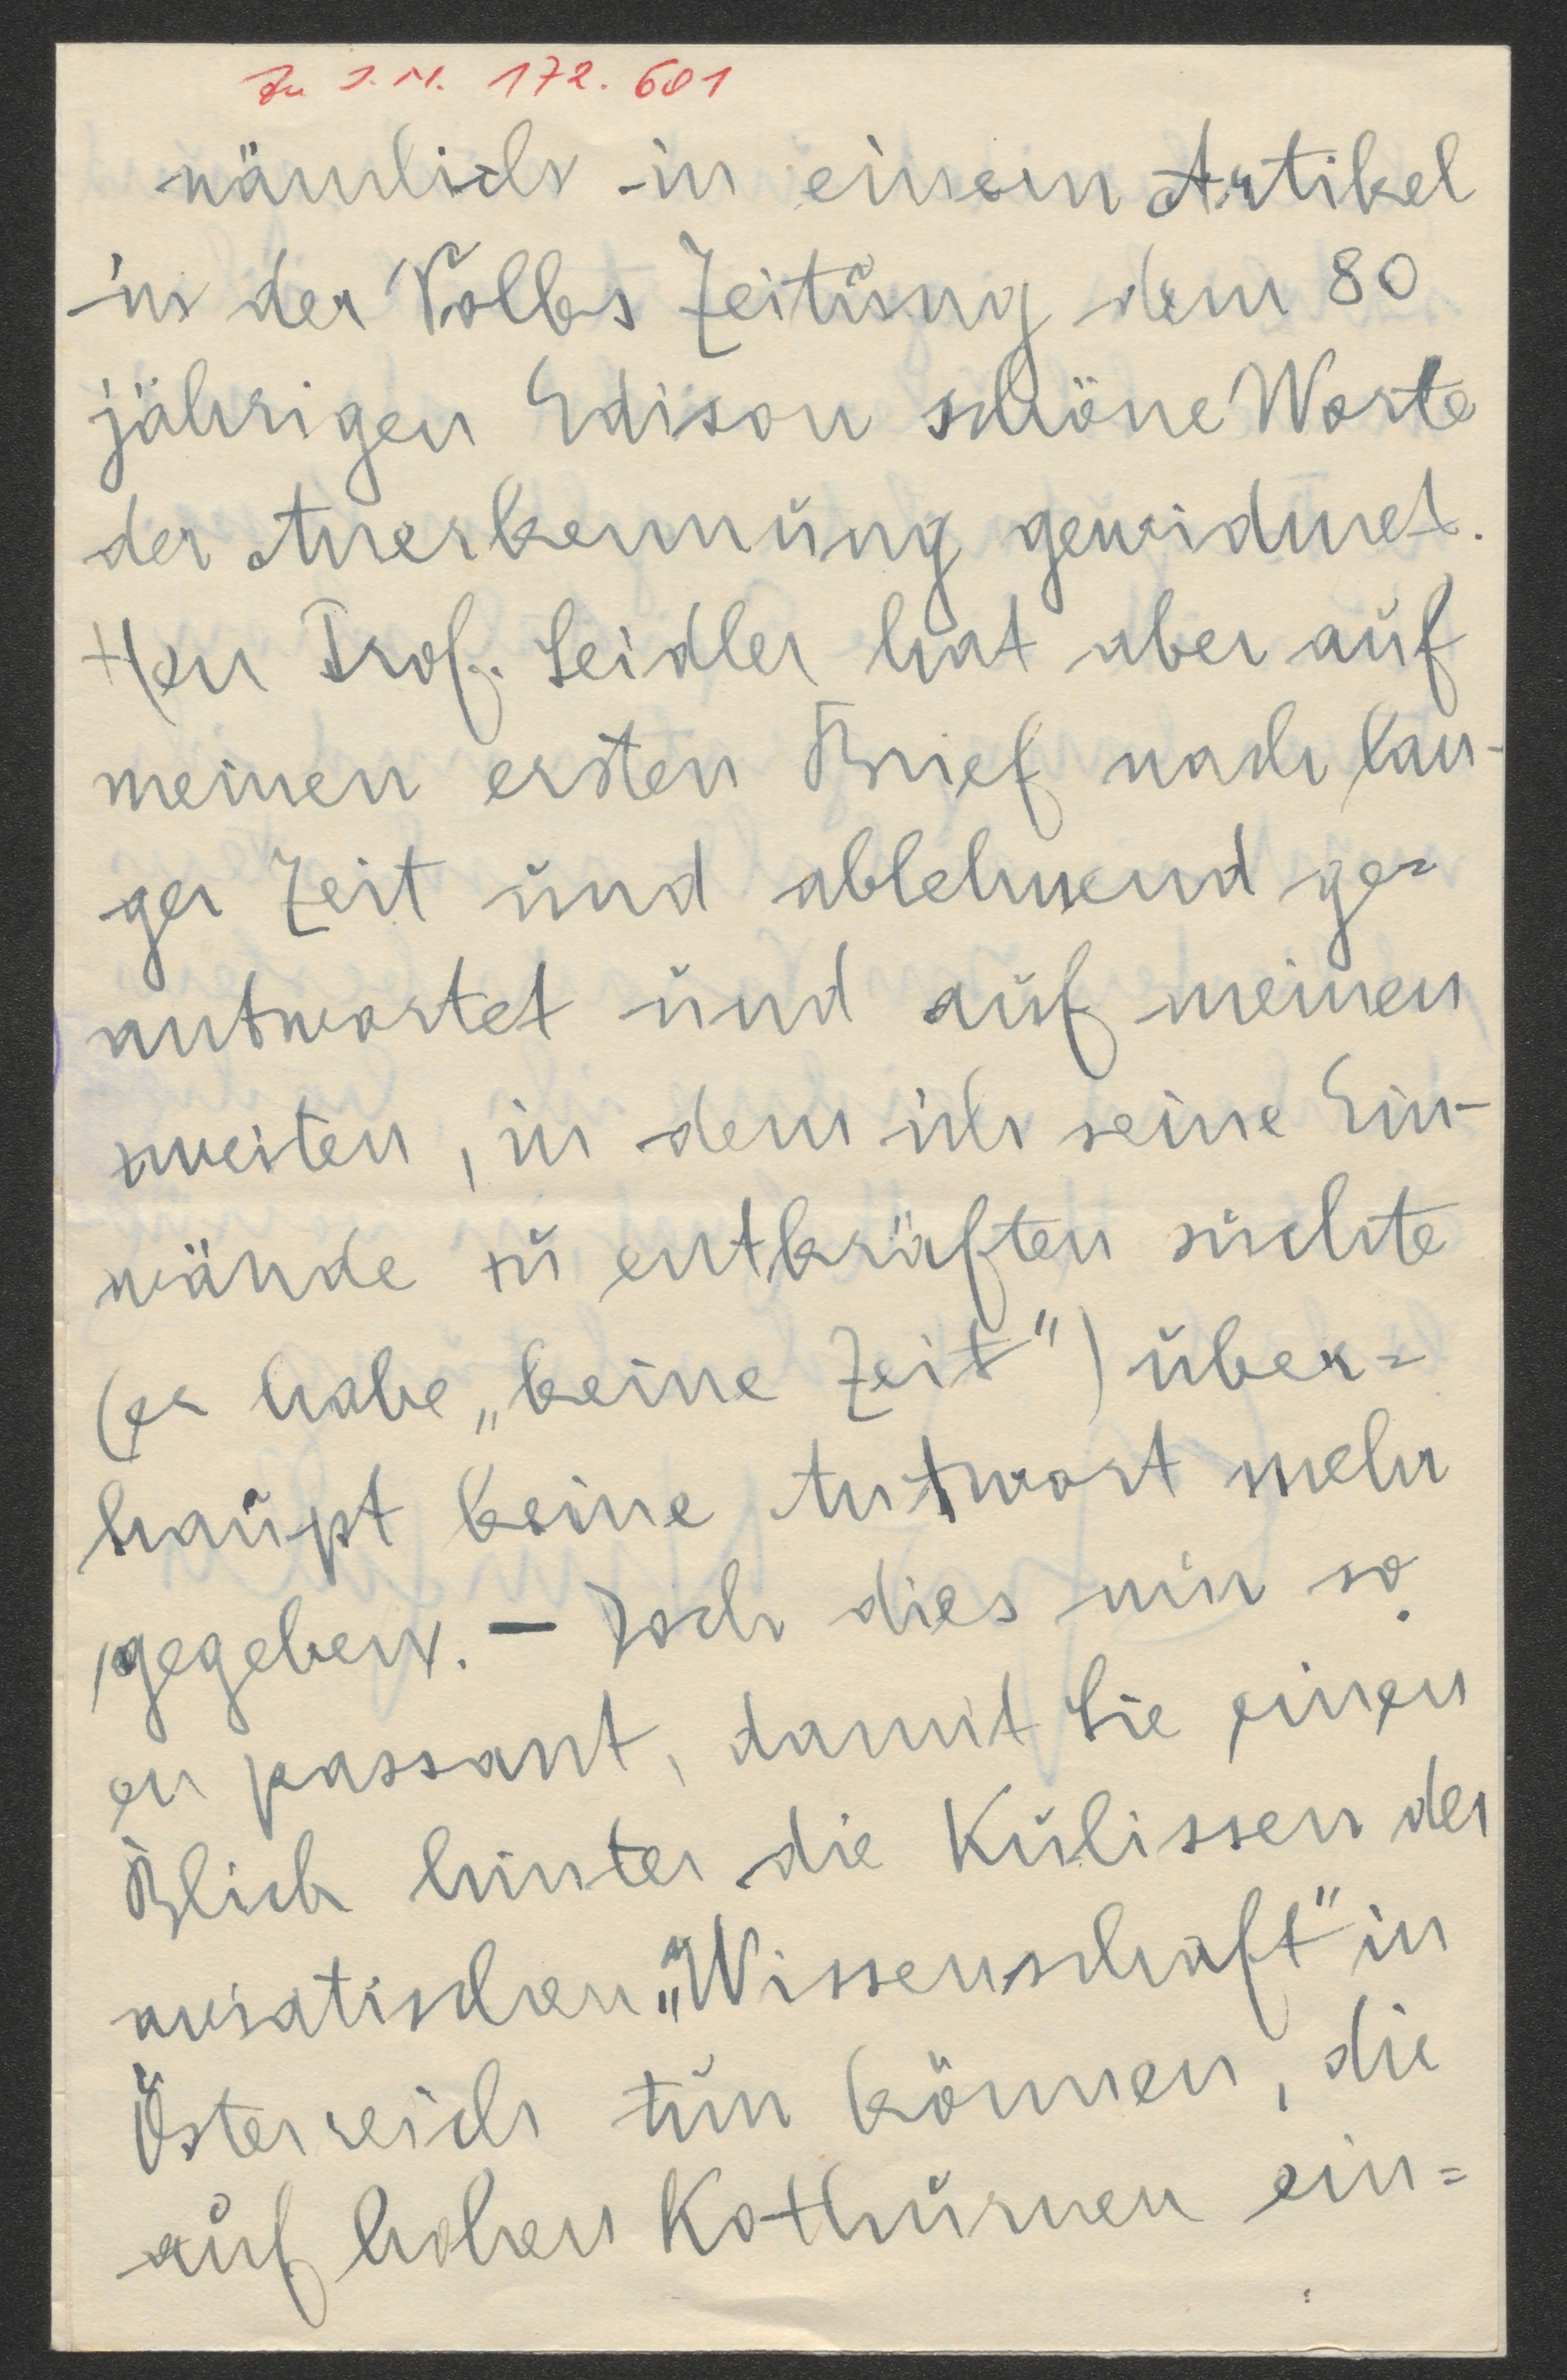 Zu I.N. 172.601
nämlich in einem Artikel
in der Volks Zeitung dem 80
jährigen Edison schöne Worte
der Anerkennung gewidmet.
Herr Prof. Seidler hat aber auf
meinen ersten Brief nach lan-
ger Zeit und ablehnend ge=
antwortet und auf meinen
zweiten, in dem ich seine Ein-
wände zu entkräften suchte
(er habe „keine Zeit") über=
haupt keine Antwort mehr
gegeben. – Doch dies nur so
en passant, damit Sie einen
Blick hinter die Kulissen der
aviatischen „Wissenschaft" in
Österreich tun können, die
auf hohen Kothurnen ein=